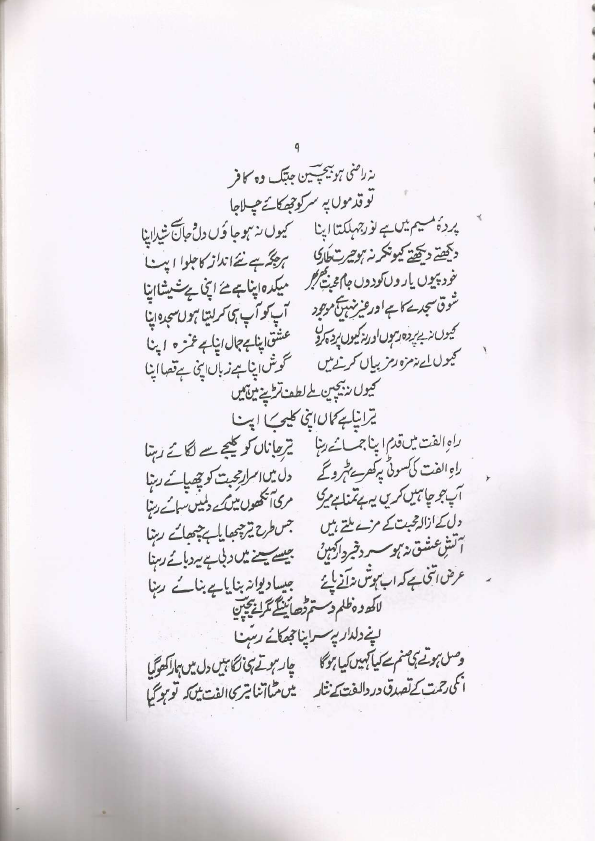 ۹
نہ راضی ہو بیچین جبتک وہ کافر
تو قدموں پہ سر کو جھکائے چلا جا
پردۂ میم میں ہے نور جھلکتا اپنا کیوں نہ ہو جاؤں دل و جان سے شیدا اپنا
دیکھتے دیکھتے کیونکر نہ ہو حیرت طاری ہر جگہ ہے نئے انداز کا جلوا اپنا
خود پیوں یاروں کو دوں جام محبت بھر بھر میکدہ اپنا ہے مئے اپنی ہے شیشا اپنا
شوق سجدے کا ہے اور غیر نہیں ہے موجود آپ کو آپ ہی کر لیتا ہوں سجدہ اپنا
کیوں نہ بے پردہ رہوں اور نہ کیوں پردہ کروں عشق اپنا ہے جمال اپنا ہے غمزہ اپنا
کیوں اے نہ مزہ رمز بیاں کرنے میں گوش اپنا ہے زباں اپنی ہے قصا اپنا
کیوں نہ بیچین ملے لطف تڑپنے میں ہمیں
تیر اپنا ہے کماں اپنی کلیجا اپنا
راہِ الفت میں قدم اپنا جمائے رہنا تیر جاناں کو کلیجے سے لگائے رہنا
راہِ الفت کی کسوٹی پہ کھرے ٹہروگے دل میں اسرار محبت کو چھپائے رہنا
آپ جو چاہیں کریں یہ ہے تمنا میری مری آنکھوں میں مرے دلمیں سمائے رہنا
دل کے ازالہ محبت کے مزے ملتے ہیں جس طرح تیر چبھایا ہے چبھائے رہنا
آتشِ عشق نہ ہو سرد خبردار کہیں جیسے سینے میں دبی ہے یہ دبائے رہنا
عرض اتنی ہے کہ اب ہوش نہ آنے پائے جیسا دیوانہ بنایا ہے بنائے رہنا
لاکھ وہ ظلم و ستم ڈھائینگے مگر اے بیچین
اپنے دلدار پہ سر اپنا جھکائے رہنا
وصل ہوتے ہی صنم سے کیا کہیں کیا ہوگا چار ہوتے ہی نگاہیں دل ہمارا کھو گیا
انکی رحمت کے تصدق درد الفت کے نثار میں مٹا اتنا تیری الفت میں کہ تو ہو گیا